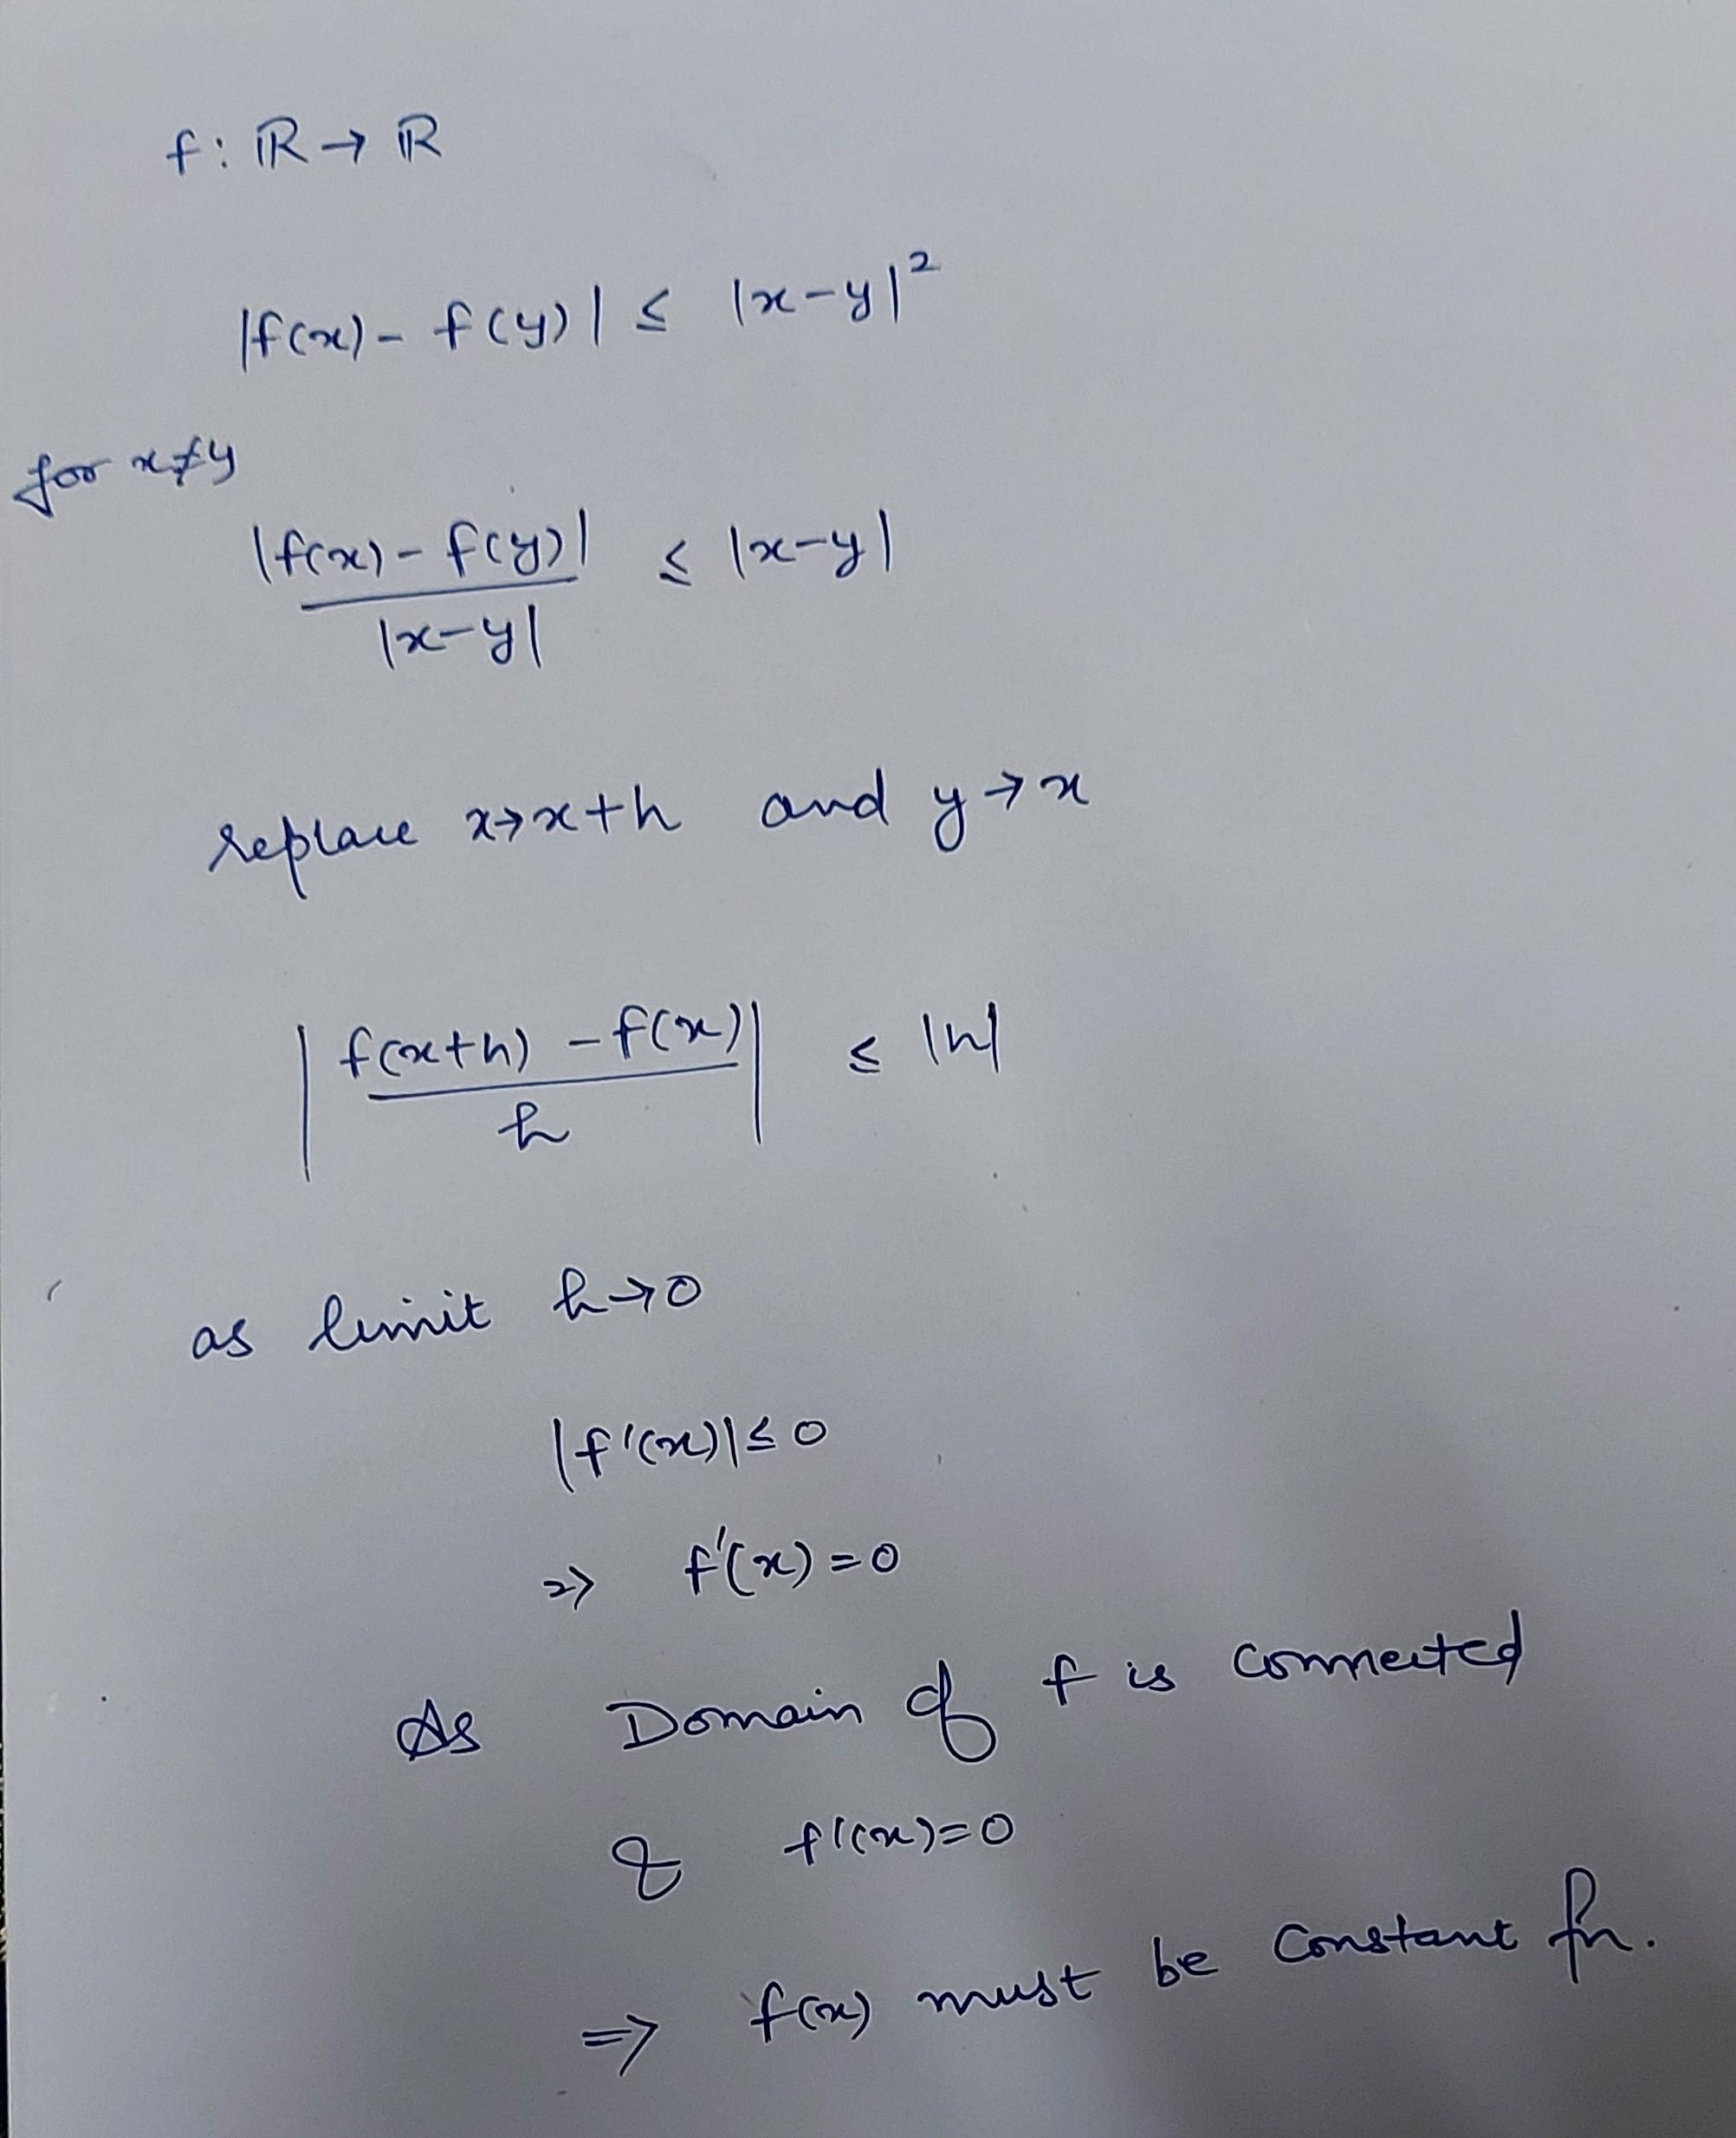 f: ℝ → ℝ
|f(x) - f(y)| ≤ |x-y|²
for x≠y
|f(x) - f(y)| / |x-y| ≤ |x-y|
replace x→x+h and y→x
|f(x+h) - f(x) / h| ≤ |h|
as limit h→0
|f'(x)| ≤ 0
⇒ f'(x) = 0
As Domain of f is connected
& f'(x)=0
⇒ f(x) must be constant fn.